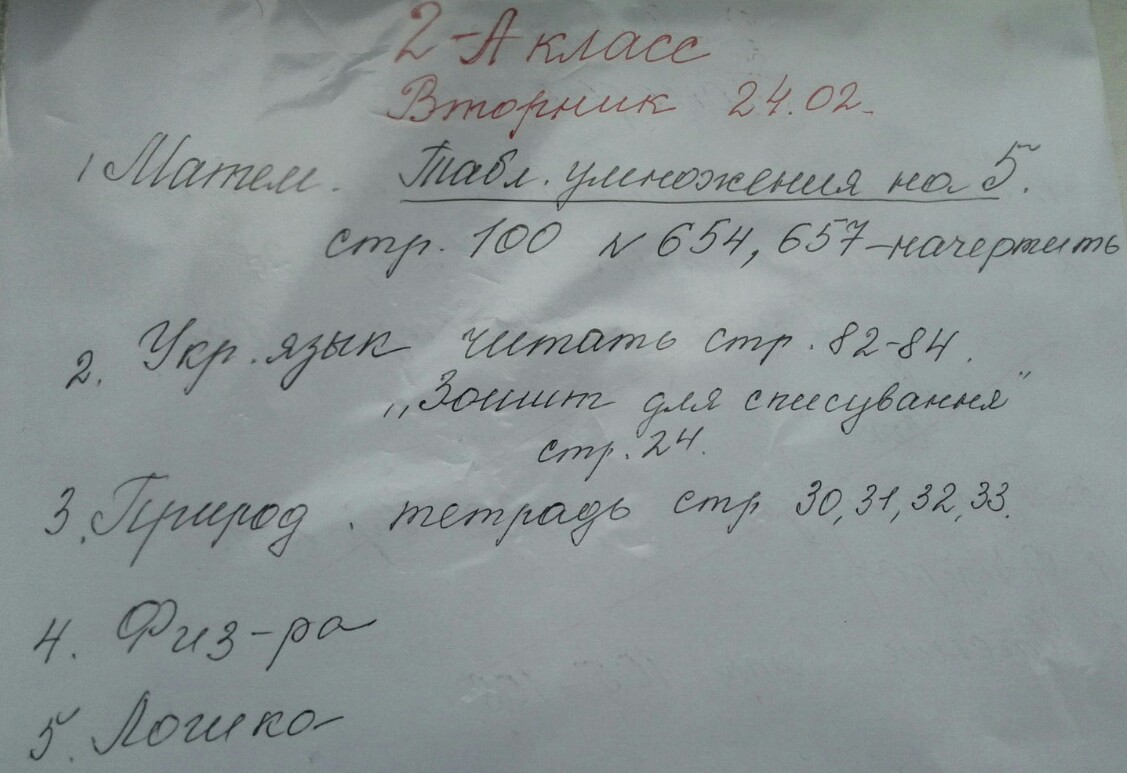 2-А класс
Вторник 24.02.
1 Матем. Табл. умножения на 5.
стр. 100 № 654, 657-начертить
2. Укр. язык читать стр. 82-84.
„Зошит для списування"
стр. 24.
3. Природ. тетрадь стр 30, 31, 32, 33.
4. Физ-ра
5. Логика